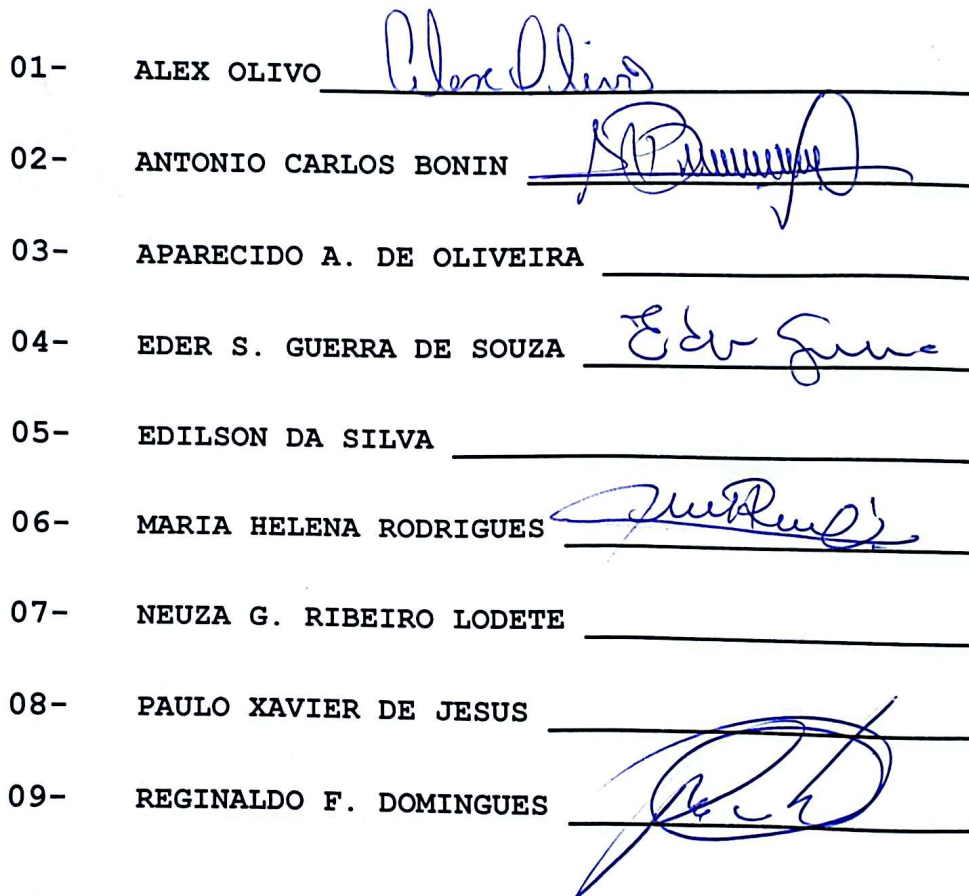 01- ALEX OLIVO Alex Olivo
02- ANTONIO CARLOS BONIN
03- APARECIDO A. DE OLIVEIRA
04- EDER S. GUERRA DE SOUZA Eder Guerra
05- EDILSON DA SILVA
06- MARIA HELENA RODRIGUES
07- NEUZA G. RIBEIRO LODETE
08- PAULO XAVIER DE JESUS
09- REGINALDO F. DOMINGUES